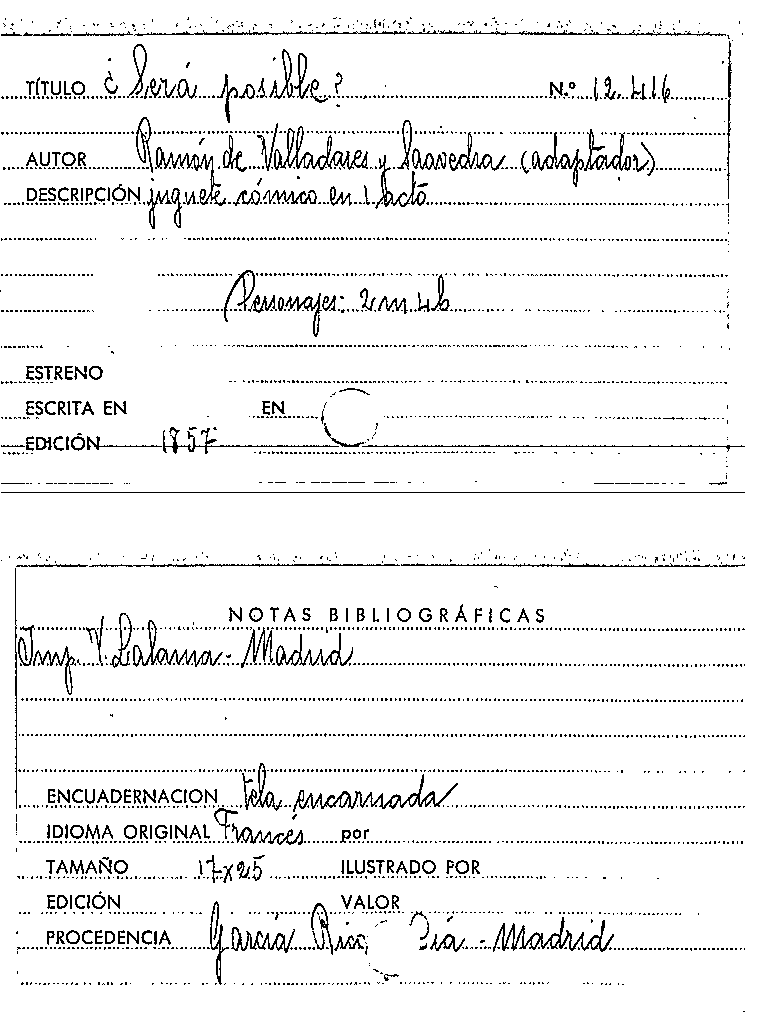 TÍTULO ¿Será posible? N.º 12.416
AUTOR Ramón de Valladares y Saavedra (adaptador)
DESCRIPCIÓN juguete cómico en 1 acto
Personajes: 2 m. 4 h
ESTRENO
ESCRITA EN EN
EDICIÓN 1857
NOTAS BIBLIOGRÁFICAS
Imp. V. Lalama - Madrid
ENCUADERNACION tela encarnada
IDIOMA ORIGINAL Francés por
TAMAÑO 17x25 ILUSTRADO POR
EDICIÓN VALOR
PROCEDENCIA García Rico Cía - Madrid